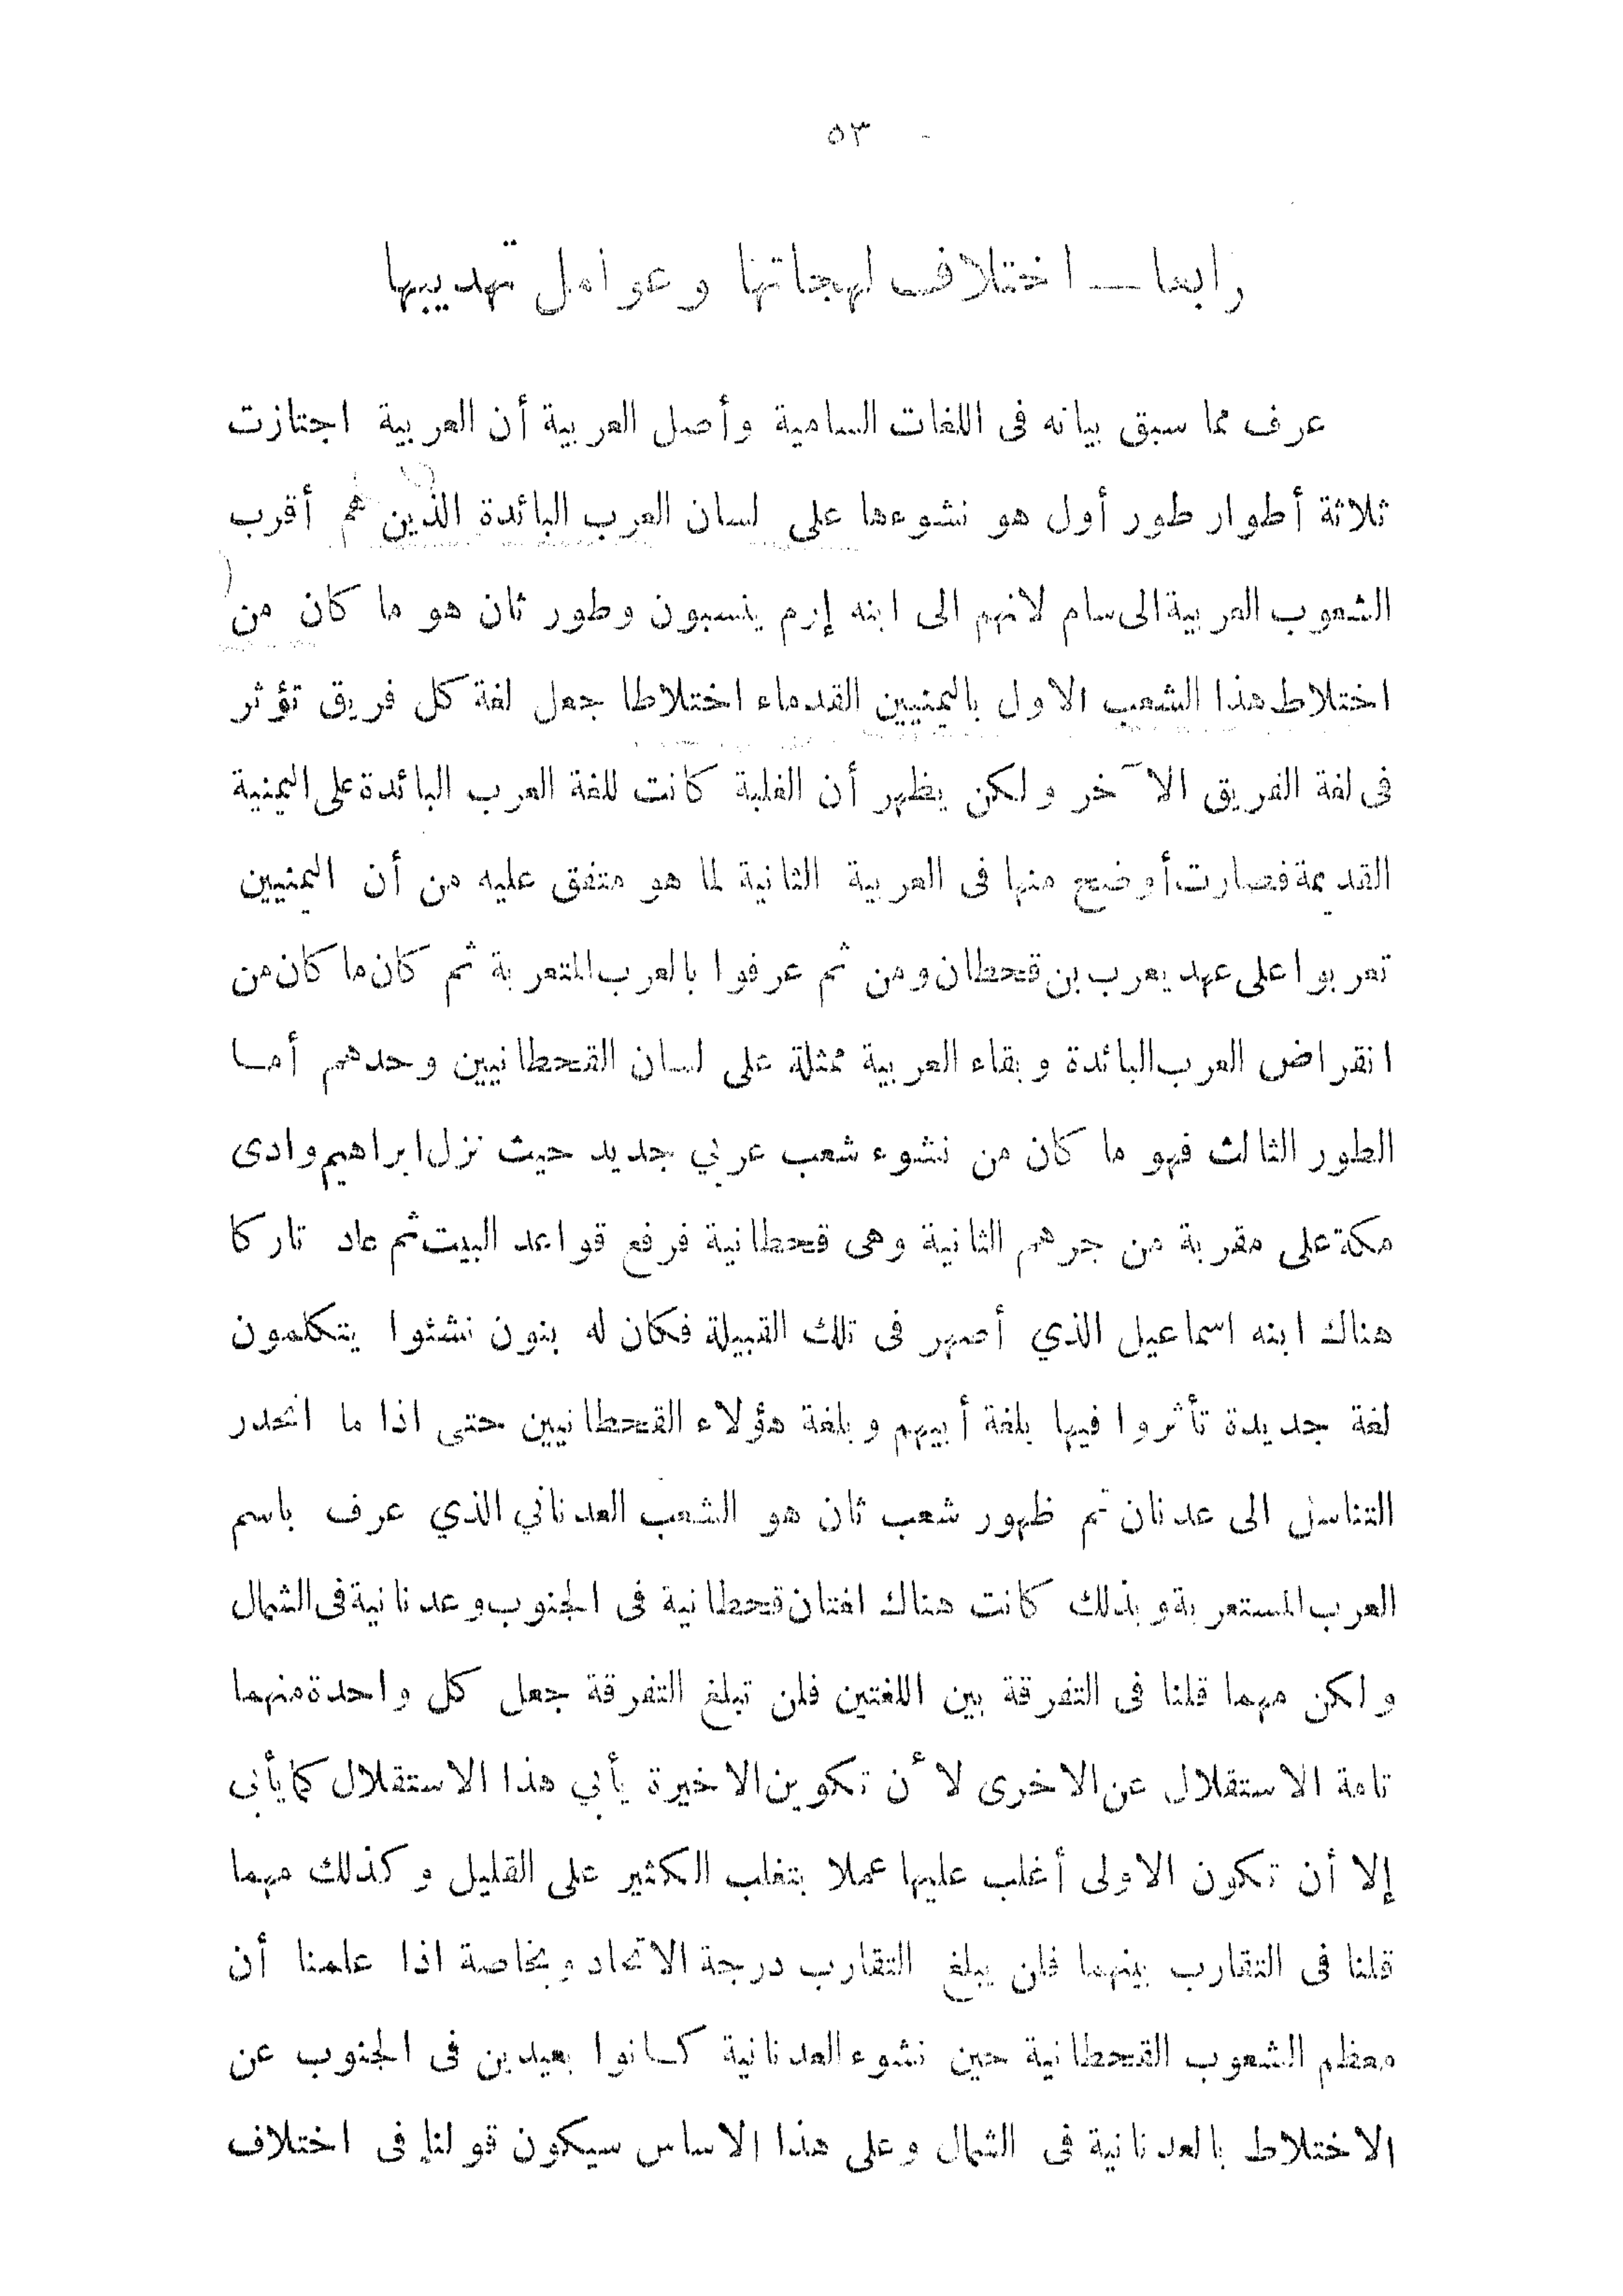 ٥٣
رابعا — اختلاف لهجاتها وعوامل تهذيبها
عرف مما سبق بيانه فى اللغات السامية وأصل العربية أن العربية اجتازت
ثلاثة أطوار طور أول هو نشوءها على لسان العرب البائدة الذين هم أقرب
الشعوب العربية الى سام لانهم الى ابنه إرم ينسبون وطور ثان هو ما كان من
اختلاط هذا الشعب الاول باليمنيين القدماء اختلاطا جعل لغة كل فريق تؤثر
فى لغة الفريق الآخر ولكن يظهر أن الغلبة كانت للغة العرب البائدة على اليمنية
القديمة فصارت أوضح منها فى العربية الثانية لما هو متفق عليه من أن اليمنيين
تعربوا على عهد يعرب بن قحطان ومن ثم عرفوا بالعرب المتعربة ثم كان ما كان من
انقراض العرب البائدة وبقاء العربية ممثلة على لسان القحطانيين وحدهم أما
الطور الثالث فهو ما كان من نشوء شعب عربي جديد حيث نزل ابراهيم وادى
مكة على مقربة من جرهم الثانية وهى قحطانية فرفع قواعد البيت ثم عاد تاركا
هناك ابنه اسماعيل الذي أصهر فى تلك القبيلة فكان له بنون نشئوا يتكلمون
لغة جديدة تأثروا فيها بلغة أبيهم وبلغة هؤلاء القحطانيين حتى اذا ما انحدر
التناسل الى عدنان تم ظهور شعب ثان هو الشعب العدناني الذي عرف باسم
العرب المستعربة وبذلك كانت هناك لغتان قحطانية فى الجنوب وعدنانية فى الشمال
ولكن مهما قلنا فى التفرقة بين اللغتين فلن تبلغ التفرقة جعل كل واحدة منهما
تامة الاستقلال عن الاخرى لأن تكوين الاخيرة يأبي هذا الاستقلال كما يأبى
إلا أن تكون الاولى أغلب عليها عملا بتغلب الكثير على القليل وكذلك مهما
قلنا فى التقارب بينهما فلن يبلغ التقارب درجة الاتحاد وبخاصة اذا علمنا أن
معظم الشعوب القحطانية حين نشوء العدنانية كانوا بعيدين فى الجنوب عن
الاختلاط بالعدنانية فى الشمال وعلى هذا الاساس سيكون قولنا فى اختلاف